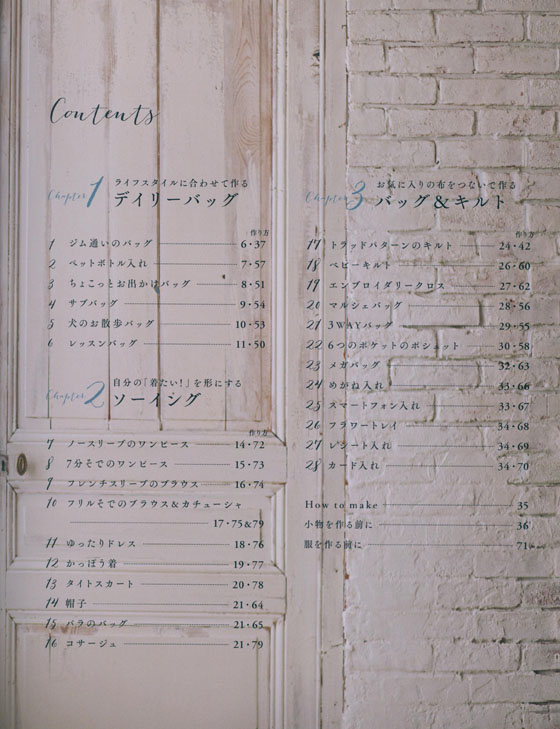 Contents
Chapter 1
ライフスタイルに合わせて作る
デイリーバッグ
作り方
1 ジム通いのバッグ 6・37
2 ペットボトル入れ 7・57
3 ちょこっとお出かけバッグ 8・51
4 サブバッグ 9・54
5 犬のお散歩バッグ 10・53
6 レッスンバッグ 11・50
Chapter 2
自分の「着たい!」を形にする
ソーイング
作り方
7 ノースリーブのワンピース 14・72
8 7分そでのワンピース 15・73
9 フレンチスリーブのブラウス 16・74
10 フリルそでのブラウス&カチューシャ
17・75&79
11 ゆったりドレス 18・76
12 かっぽう着 19・77
13 タイトスカート 20・78
14 帽子 21・64
15 バラのバッグ 21・65
16 コサージュ 21・79
Chapter 3
お気に入りの布をつないで作る
バッグ&キルト
作り方
17 トラッドパターンのキルト 24・42
18 ベビーキルト 26・60
19 エンブロイダリークロス 27・62
20 マルシェバッグ 28・56
21 3WAYバッグ 29・55
22 6つのポケットのポシェット 30・58
23 メガバッグ 32・63
24 めがね入れ 33・66
25 スマートフォン入れ 33・67
26 フラワートレイ 34・68
27 レシート入れ 34・69
28 カード入れ 34・70
How to make 35
小物を作る前に 36
服を作る前に 71